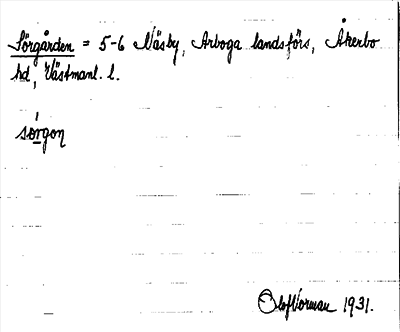 Sörgården = 5-6 Näsby, Arboga landsförs, Åkerbo
hd, Västmanl. l.
sörgon
Olof Norman 1931.